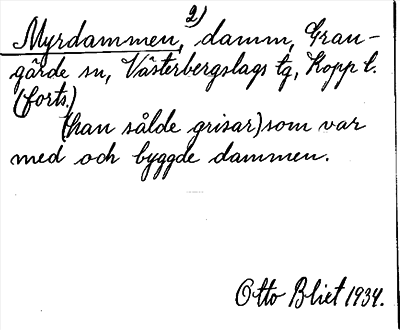 2)
Myrdammen, damm, Gran-
gärde sn, Västerbergslags tg, Kopp l.
(forts.)
(han sålde grisar) som var
med och byggde dammen.
Otto Bliet 1934.